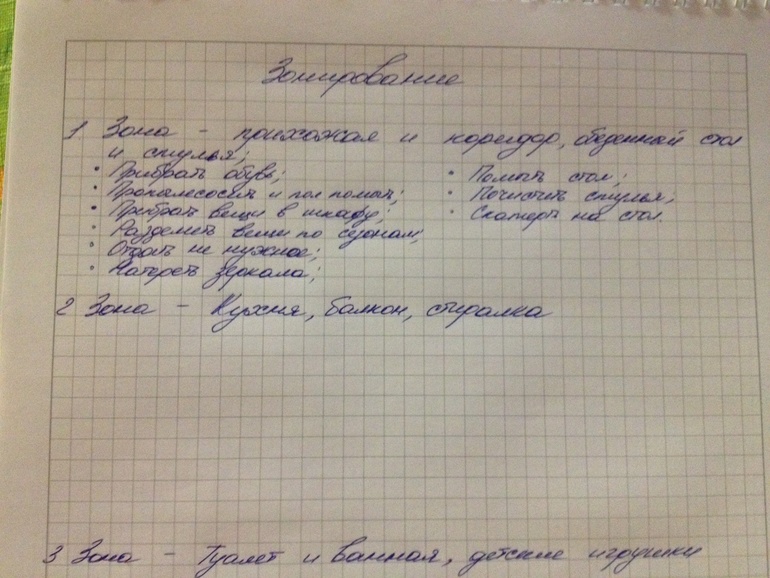 Зонирование
1 Зона - прихожая и коридор, обеденный стол
и стулья;
• Прибрать обувь;
• Пропылесосить и пол помыть;
• Прибрать вещи в шкафу;
• Разделить вещи по сезонам;
• Отдать не нужное;
• Натереть зеркала;
• Помыть стол;
• Почистить стулья;
• Скатерть на стол.
2 Зона - Кухня, балкон, стиралка
3 Зона - Туалет и ванная, детские игрушки